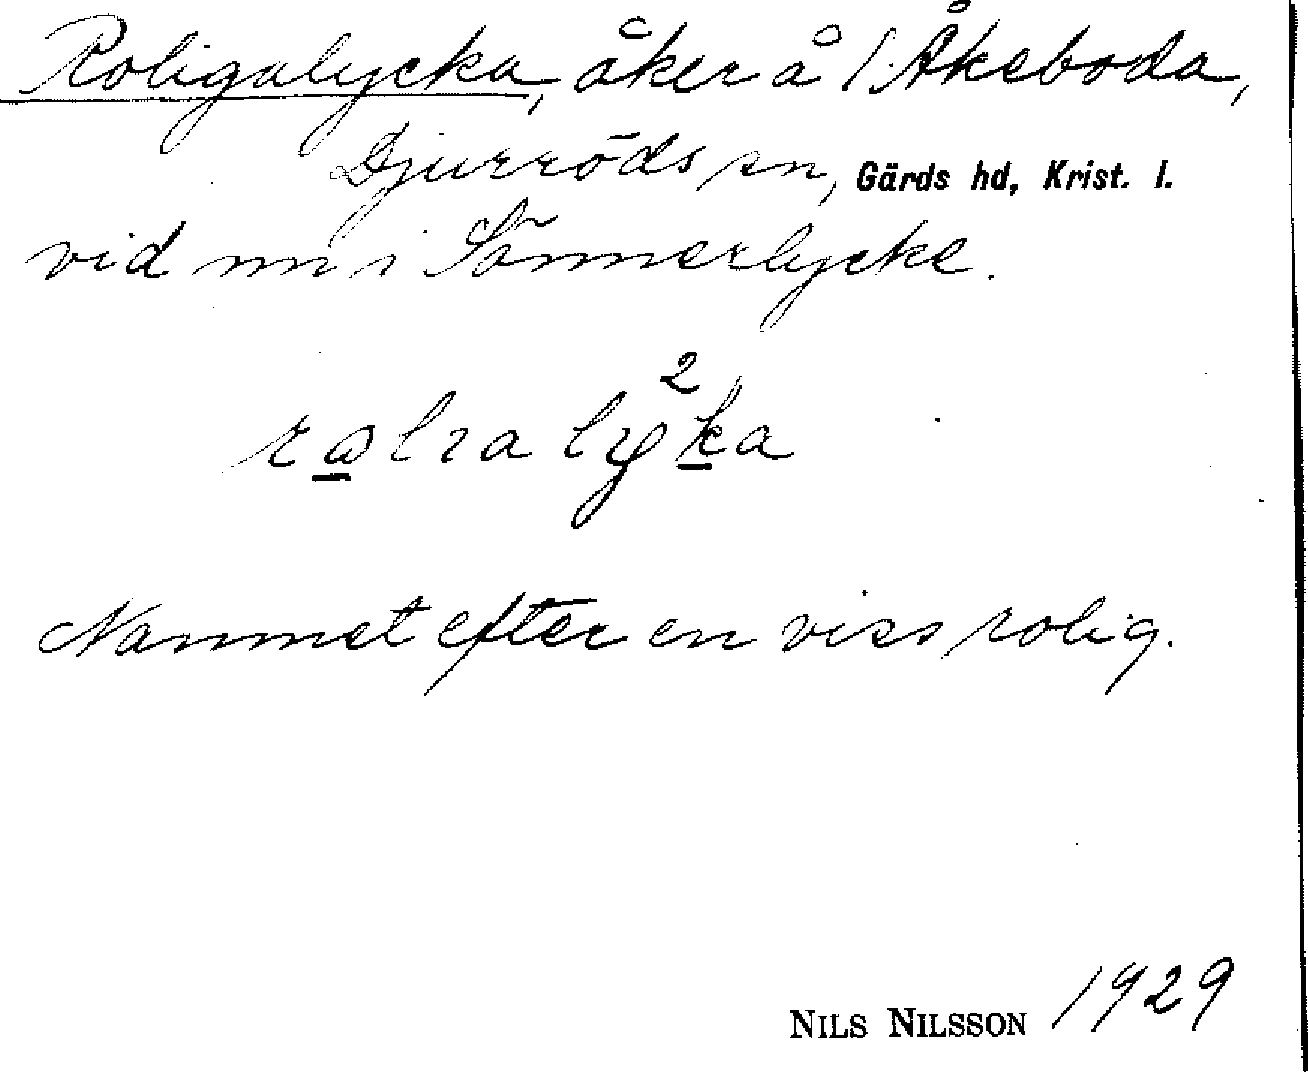 Roligalycka, åker å 1 Åkeboda,
Djurröds sn, Gärds hd, Krist. l.
vid nr 1 Sönnerlycke.
2
Namnet efter en viss rolig.
NILS NILSSON 1929